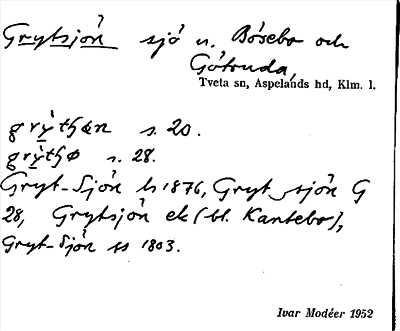 Grytsjön sjö n. Bösebo och
Götsunda,
Tveta sn, Aspelands hd, Klm. l.
s. 20.
s. 28.
Gryt-Sjön ls 1876, Gryt sjön G
28, Grytsjön ek (bl. Kantebo),
Gryt-Sjön ss 1803.
Ivar Modéer 1952